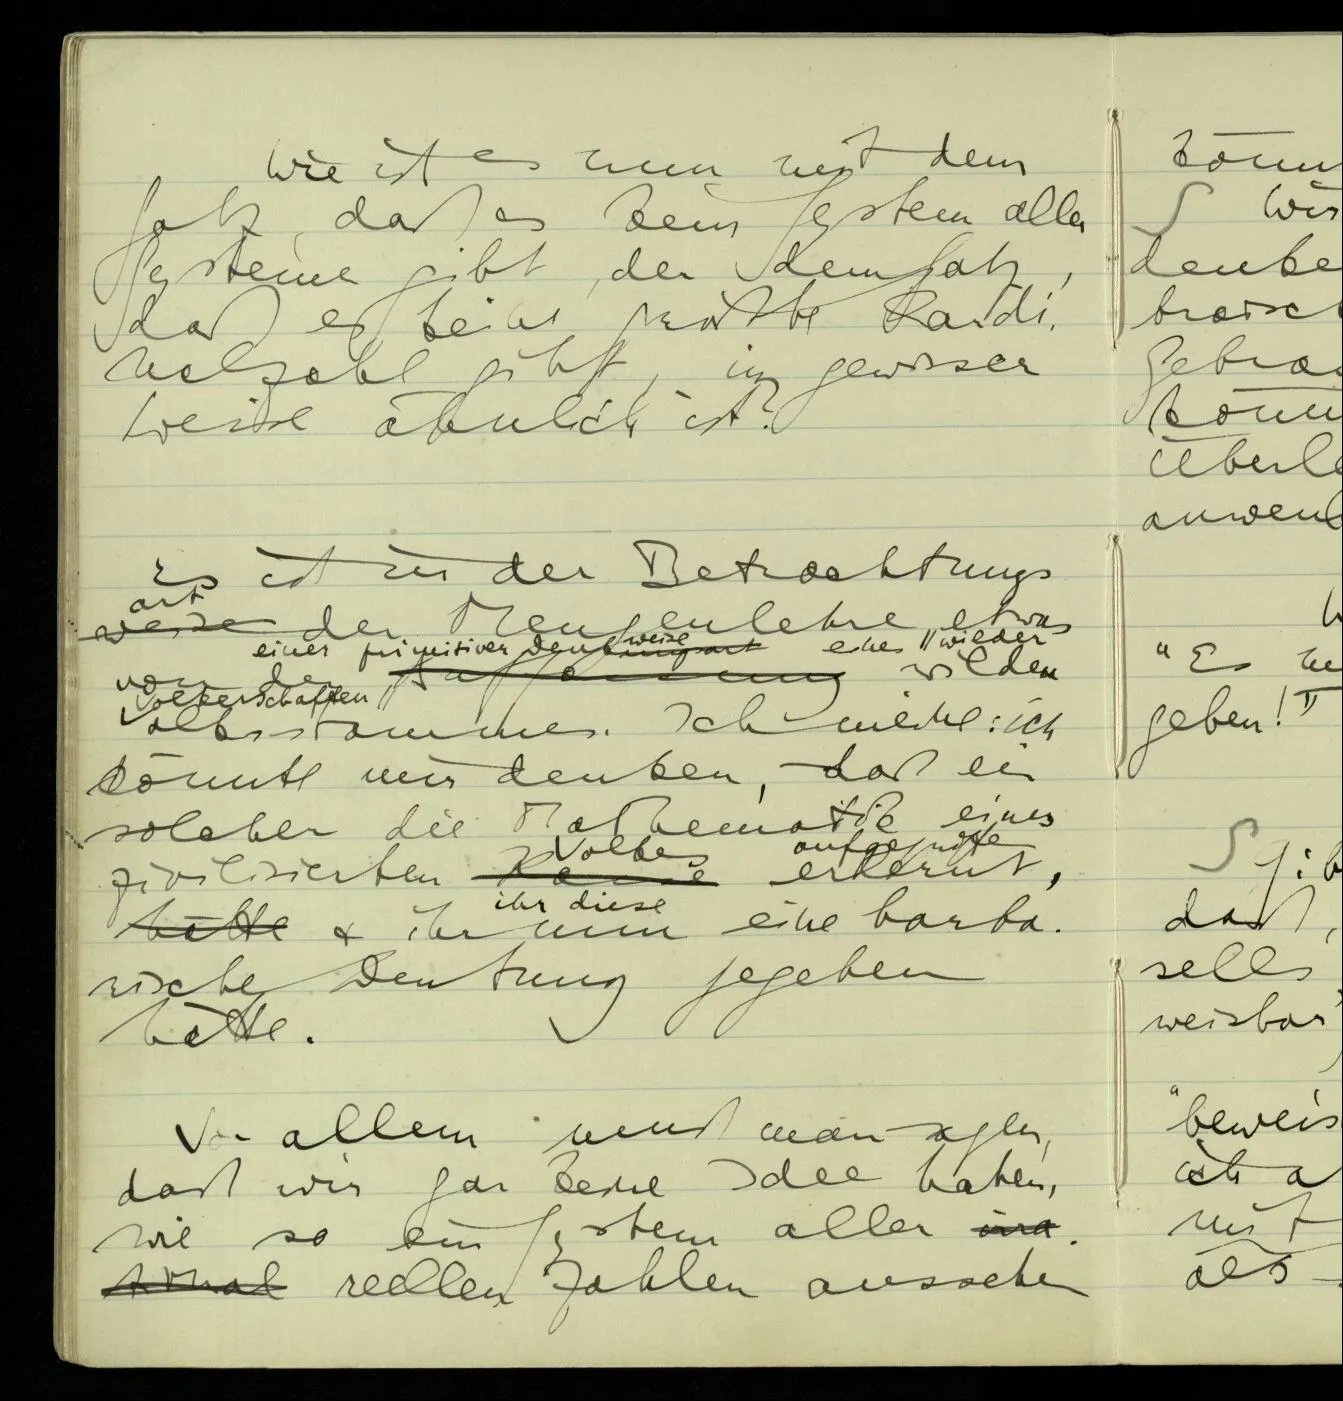 Wie ist es nun mit dem
Satz, daß es kein System aller
Systeme gibt, der dem Satz,
daß es keine größte Kardi-
nalzahl gibt, in gewisser
Weise ähnlich ist?
Es ist in der Betrachtungs
art
weise der Mengenlehre etwas
einer primitiven Denkungsart weise eines "wieder
von der Auffassung wilden
Völkerschaften"
Volksstammes. Ich meine: ich
könnte mir denken, daß ein
solcher die Mathematik eines
Volkes
zivilisierten erlernt,
ihr diese
hätte & ihr nun eine barba-
rische Deutung gegeben
hätte.
Vor allem muß man sagen,
daß wir gar keine Idee haben,
wie so ein System aller irra-
tional reellen Zahlen aussehen
könn
Wir
denke
Gebrau
könn
Überle
anwend
"Es
geben!"
daß,
selbs
weisbar
"beweis
ich a
mit
als